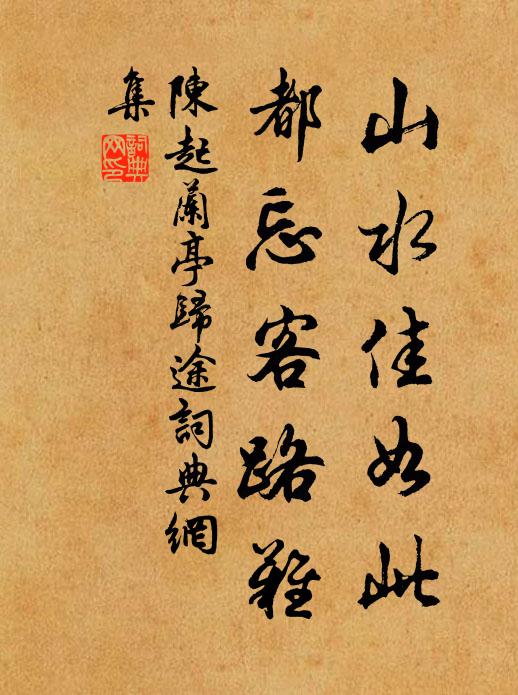 山水佳如此
都忘客路難
陳起蘭亭歸途詞典網
集
詞典
网印